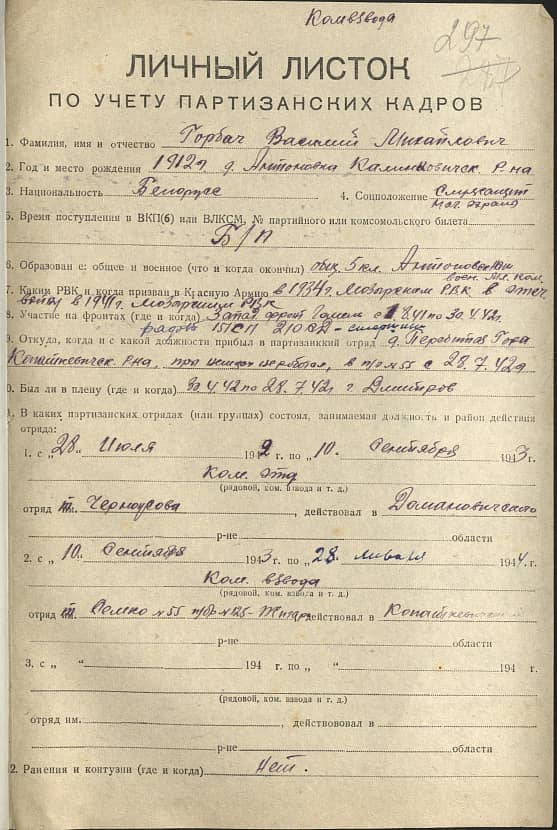 Комвзвода
297
ЛИЧНЫЙ ЛИСТОК
ПО УЧЕТУ ПАРТИЗАНСКИХ КАДРОВ
1. Фамилия, имя и отчество Горбач Василий Михайлович
2. Год и место рождения 1912г д. Антоновка Калинковичск. Р-на
3. Национальность Белорусс 4. Соцположение Служащий
5. Время поступления в ВКП(б) или ВЛКСМ, № партийного или комсомольского билета
Б/П
6. Образование: общее и военное (что и когда окончил) общ. 5 кл.
7. Каким РВК и когда призван в Красную Армию в 1934г. Мозырским РВК в отеч
войну в 1941г. Мозырским РВК
8. Участие на фронтах (где и когда) Запад. фронт с 8.41 по 30.4.42г.
151 СП 210 СД
9. Откуда, когда и с какой должности прибыл в партизанский отряд д.
Копаткевичск. Р-на, в п/о №55 с 28.7.42г
0. Был ли в плену (где и когда) 30.4.42 по 28.7.42г г. Дмитров
В каких партизанских отрядах (или группах) состоял, занимаемая должность и район действия
отряда:
1. с „28 Июля 1942 г. по „10. Сентября 1943 г.
Ком. отд
(рядовой, ком. взвода и т. д.)
отряд им. Черноусова, действовал в Домановичского
р-не области
2. с „10. Сентября 1943 г. по „28. января 1944 г.
Ком. взвода
(рядовой, ком. взвода и т. д.)
отряд им. №55 действовал в
р-не области
3. с „ “ 194 г. по „ “ 194 г.
(рядовой, ком. взвода и т. д.)
отряд им. , действововал в
р-не области
2. Ранения и контузии (где и когда) Нет.